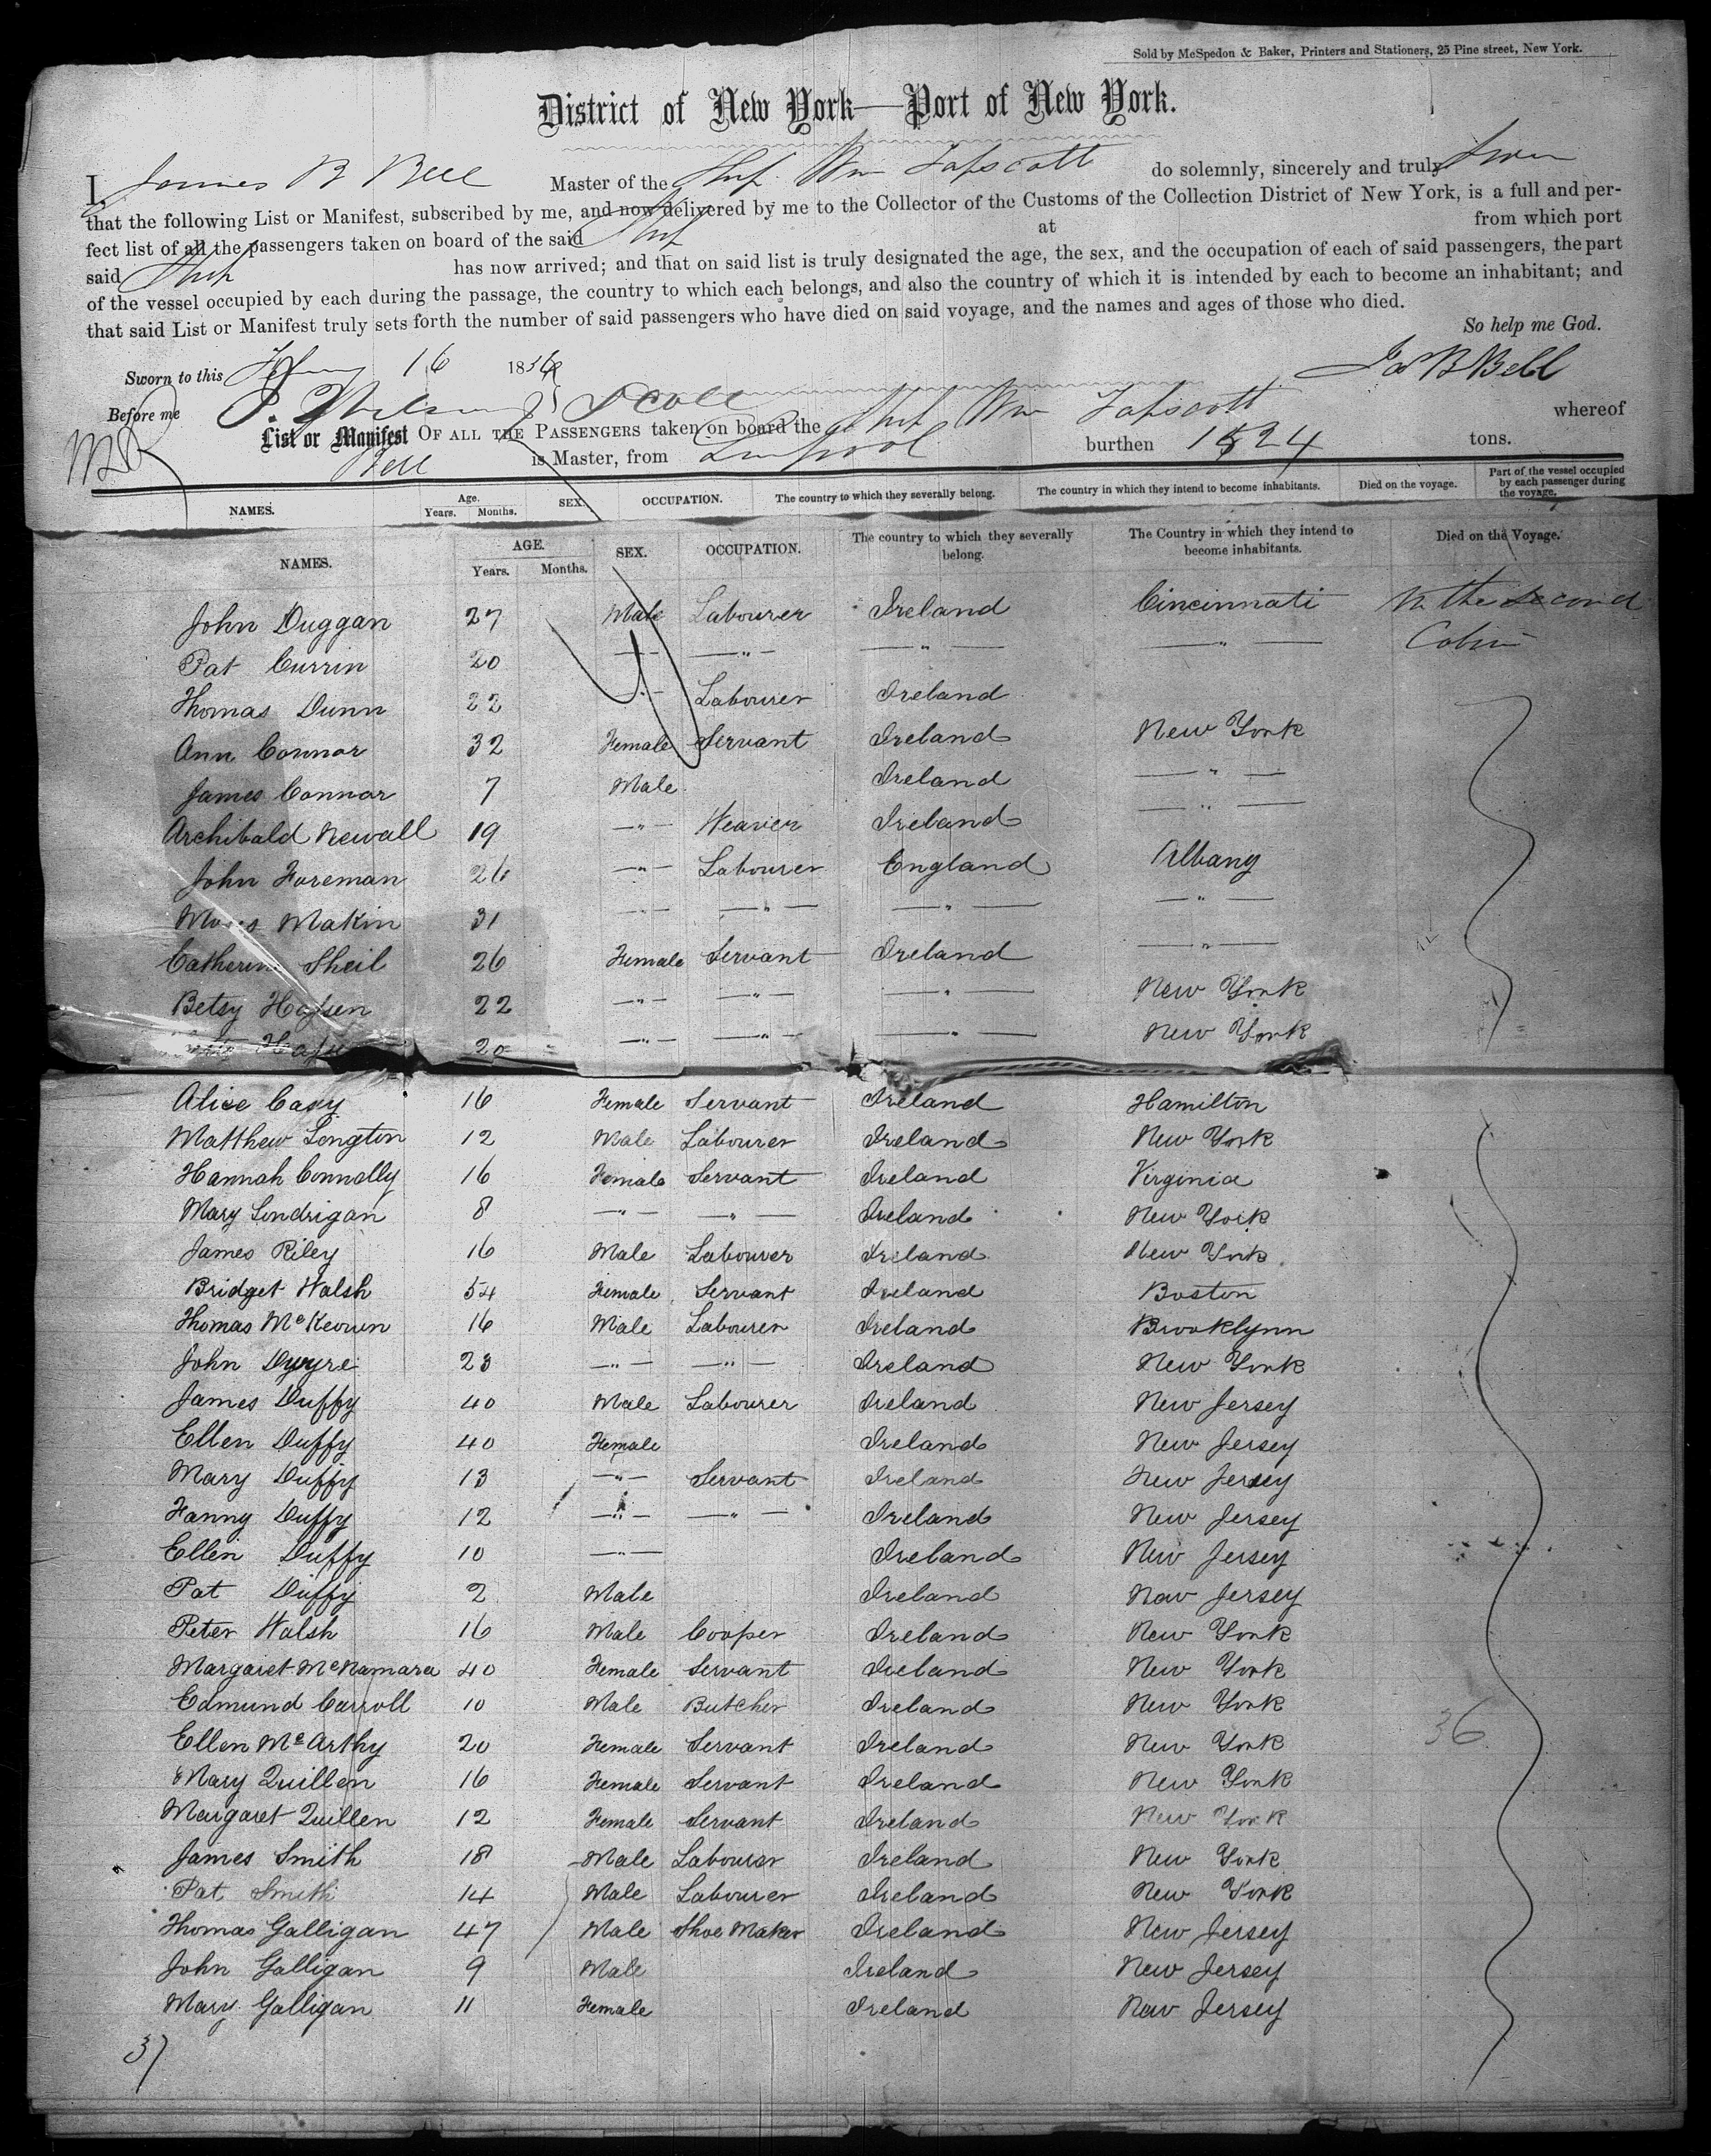 Sold by McSpedon & Baker, Printers and Stationers, 25 Pine street, New York.
District of New York—Port of New York.
I, James B Bell Master of the Ship Wm Tapscott do solemnly, sincerely and truly swear
that the following List or Manifest, subscribed by me, and now delivered by me to the Collector of the Customs of the Collection District of New York, is a full and per-
fect list of all the passengers taken on board of the said Ship at from which port
said Ship has now arrived; and that on said list is truly designated the age, the sex, and the occupation of each of said passengers, the part
of the vessel occupied by each during the passage, the country to which each belongs, and also the country of which it is intended by each to become an inhabitant; and
that said List or Manifest truly sets forth the number of said passengers who have died on said voyage, and the names and ages of those who died.
So help me God.
Sworn to this 16 1856
Jas B Bell
Before me
List or Manifest OF ALL THE PASSENGERS taken on board the Ship Wm Tapscott whereof
Bell is Master, from Liverpool burthen 1524 tons.
NAMES. Age. Years. Months. SEX. OCCUPATION. The country to which they severally belong. The country in which they intend to become inhabitants. Died on the voyage. Part of the vessel occupied by each passenger during the voyage.
NAMES. AGE. Years. Months. SEX. OCCUPATION. The country to which they severally belong. The Country in which they intend to become inhabitants. Died on the Voyage.
John Duggan 27 Male Labourer Ireland Cincinnati In the second
Pat Currin 20 " " " " Cabin
Thomas Dunn 22 " Labourer Ireland
Ann Connor 32 Female Servant Ireland New York
James Connor 7 Male Ireland "
Archibald Newall 19 " Weaver Ireland "
John Foreman 26 " Labourer England Albany
Makin 31 " " " "
Catherine Sheil 26 Female Servant Ireland "
Betsy 22 " " " New York
20 " " " New York
Alice Casy 16 Female Servant Ireland Hamilton
Matthew Longton 12 Male Labourer Ireland New York
Hannah Connolly 16 Female Servant Ireland Virginia
Mary Londrigan 8 " " Ireland New York
James Riley 16 Male Labourer Ireland New York
Bridget Walsh 54 Female Servant Ireland Boston
Thomas McKeown 16 Male Labourer Ireland Brooklynn
John Dwyre 23 " " Ireland New York
James Duffy 40 Male Labourer Ireland New Jersey
Ellen Duffy 40 Female Ireland New Jersey
Mary Duffy 13 " Servant Ireland New Jersey
Fanny Duffy 12 " " Ireland New Jersey
Ellen Duffy 10 " Ireland New Jersey
Pat Duffy 2 Male Ireland New Jersey
Peter Walsh 16 Male Cooper Ireland New York
Margaret McNamara 40 Female Servant Ireland New York
Edmund Carroll 10 Male Butcher Ireland New York
36
Ellen McArthy 20 Female Servant Ireland New York
Mary Quillen 16 Female Servant Ireland New York
Margaret Quillen 12 Female Servant Ireland New York
James Smith 18 Male Labourer Ireland New York
Pat Smith 14 Male Labourer Ireland New York
Thomas Galligan 47 Male Shoe Maker Ireland New Jersey
John Galligan 9 Male Ireland New Jersey
Mary Galligan 11 Female Ireland New Jersey
37